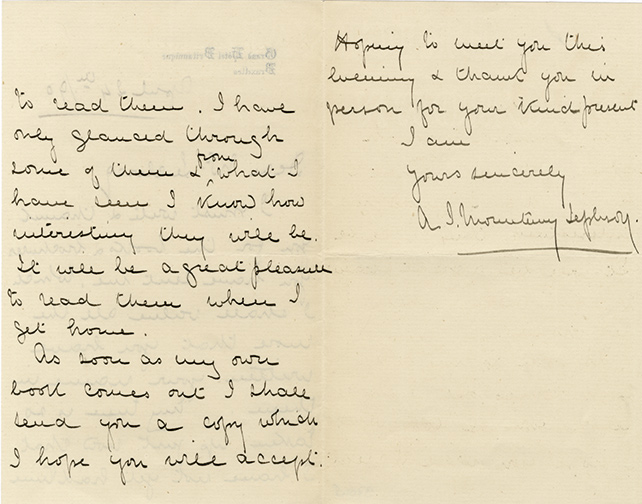 to read them. I have
only glanced through
some of them & from what I
have seen I know how
interesting they will be.
It will be a great pleasure
to read them when I
get home.
As soon as my own
book comes out I shall
send you a copy which
I hope you will accept.
Hoping to meet you this
evening & thank you in
person for your kind present
I am
Yours sincerely
A. J. Mounteney Jephson.